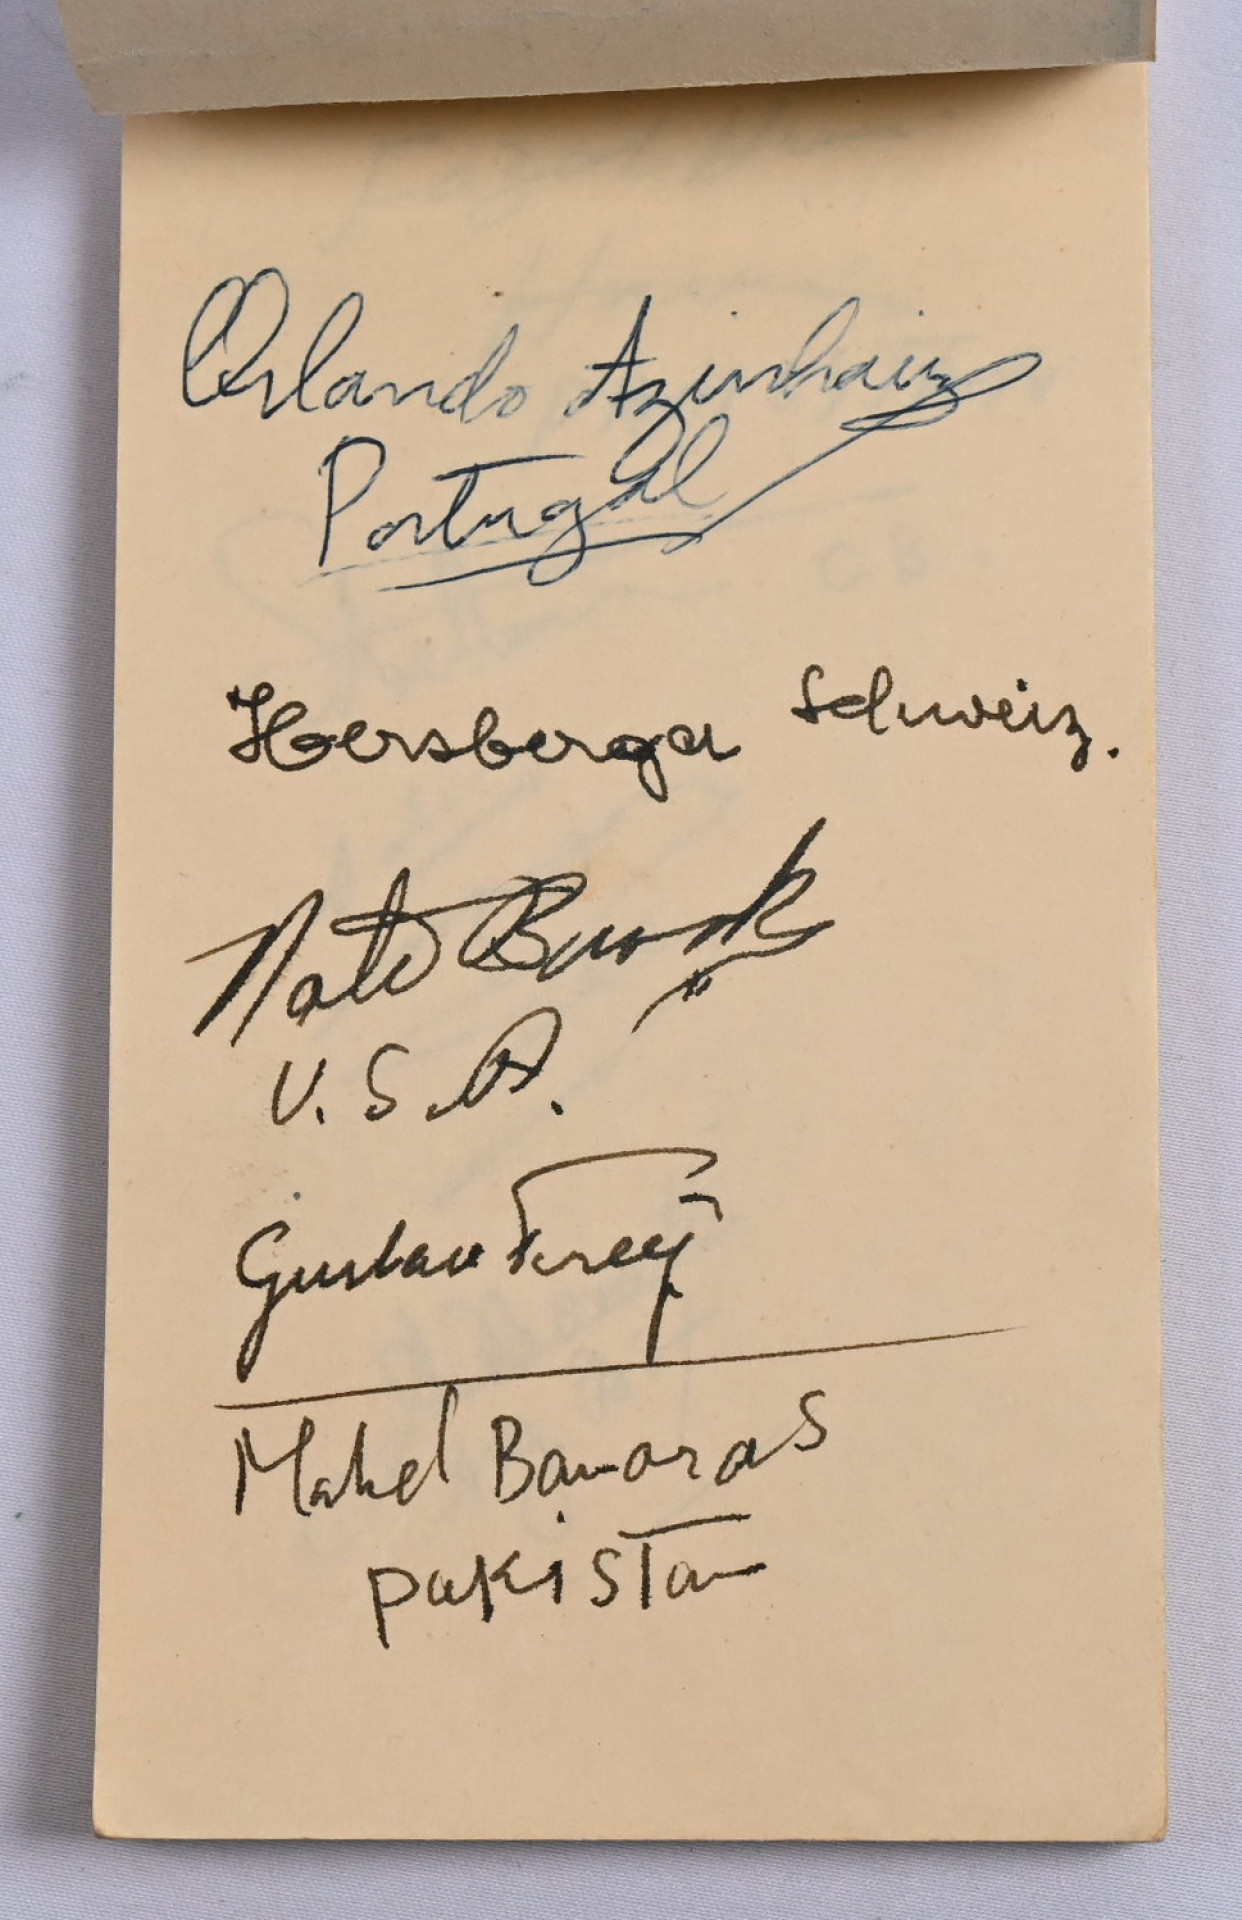 Orlando Azinhaiz
Portugal
Hersberger Schweiz.
Nate Brooks
U.S.A.
Gustav
Mabel Banaras
pakistan